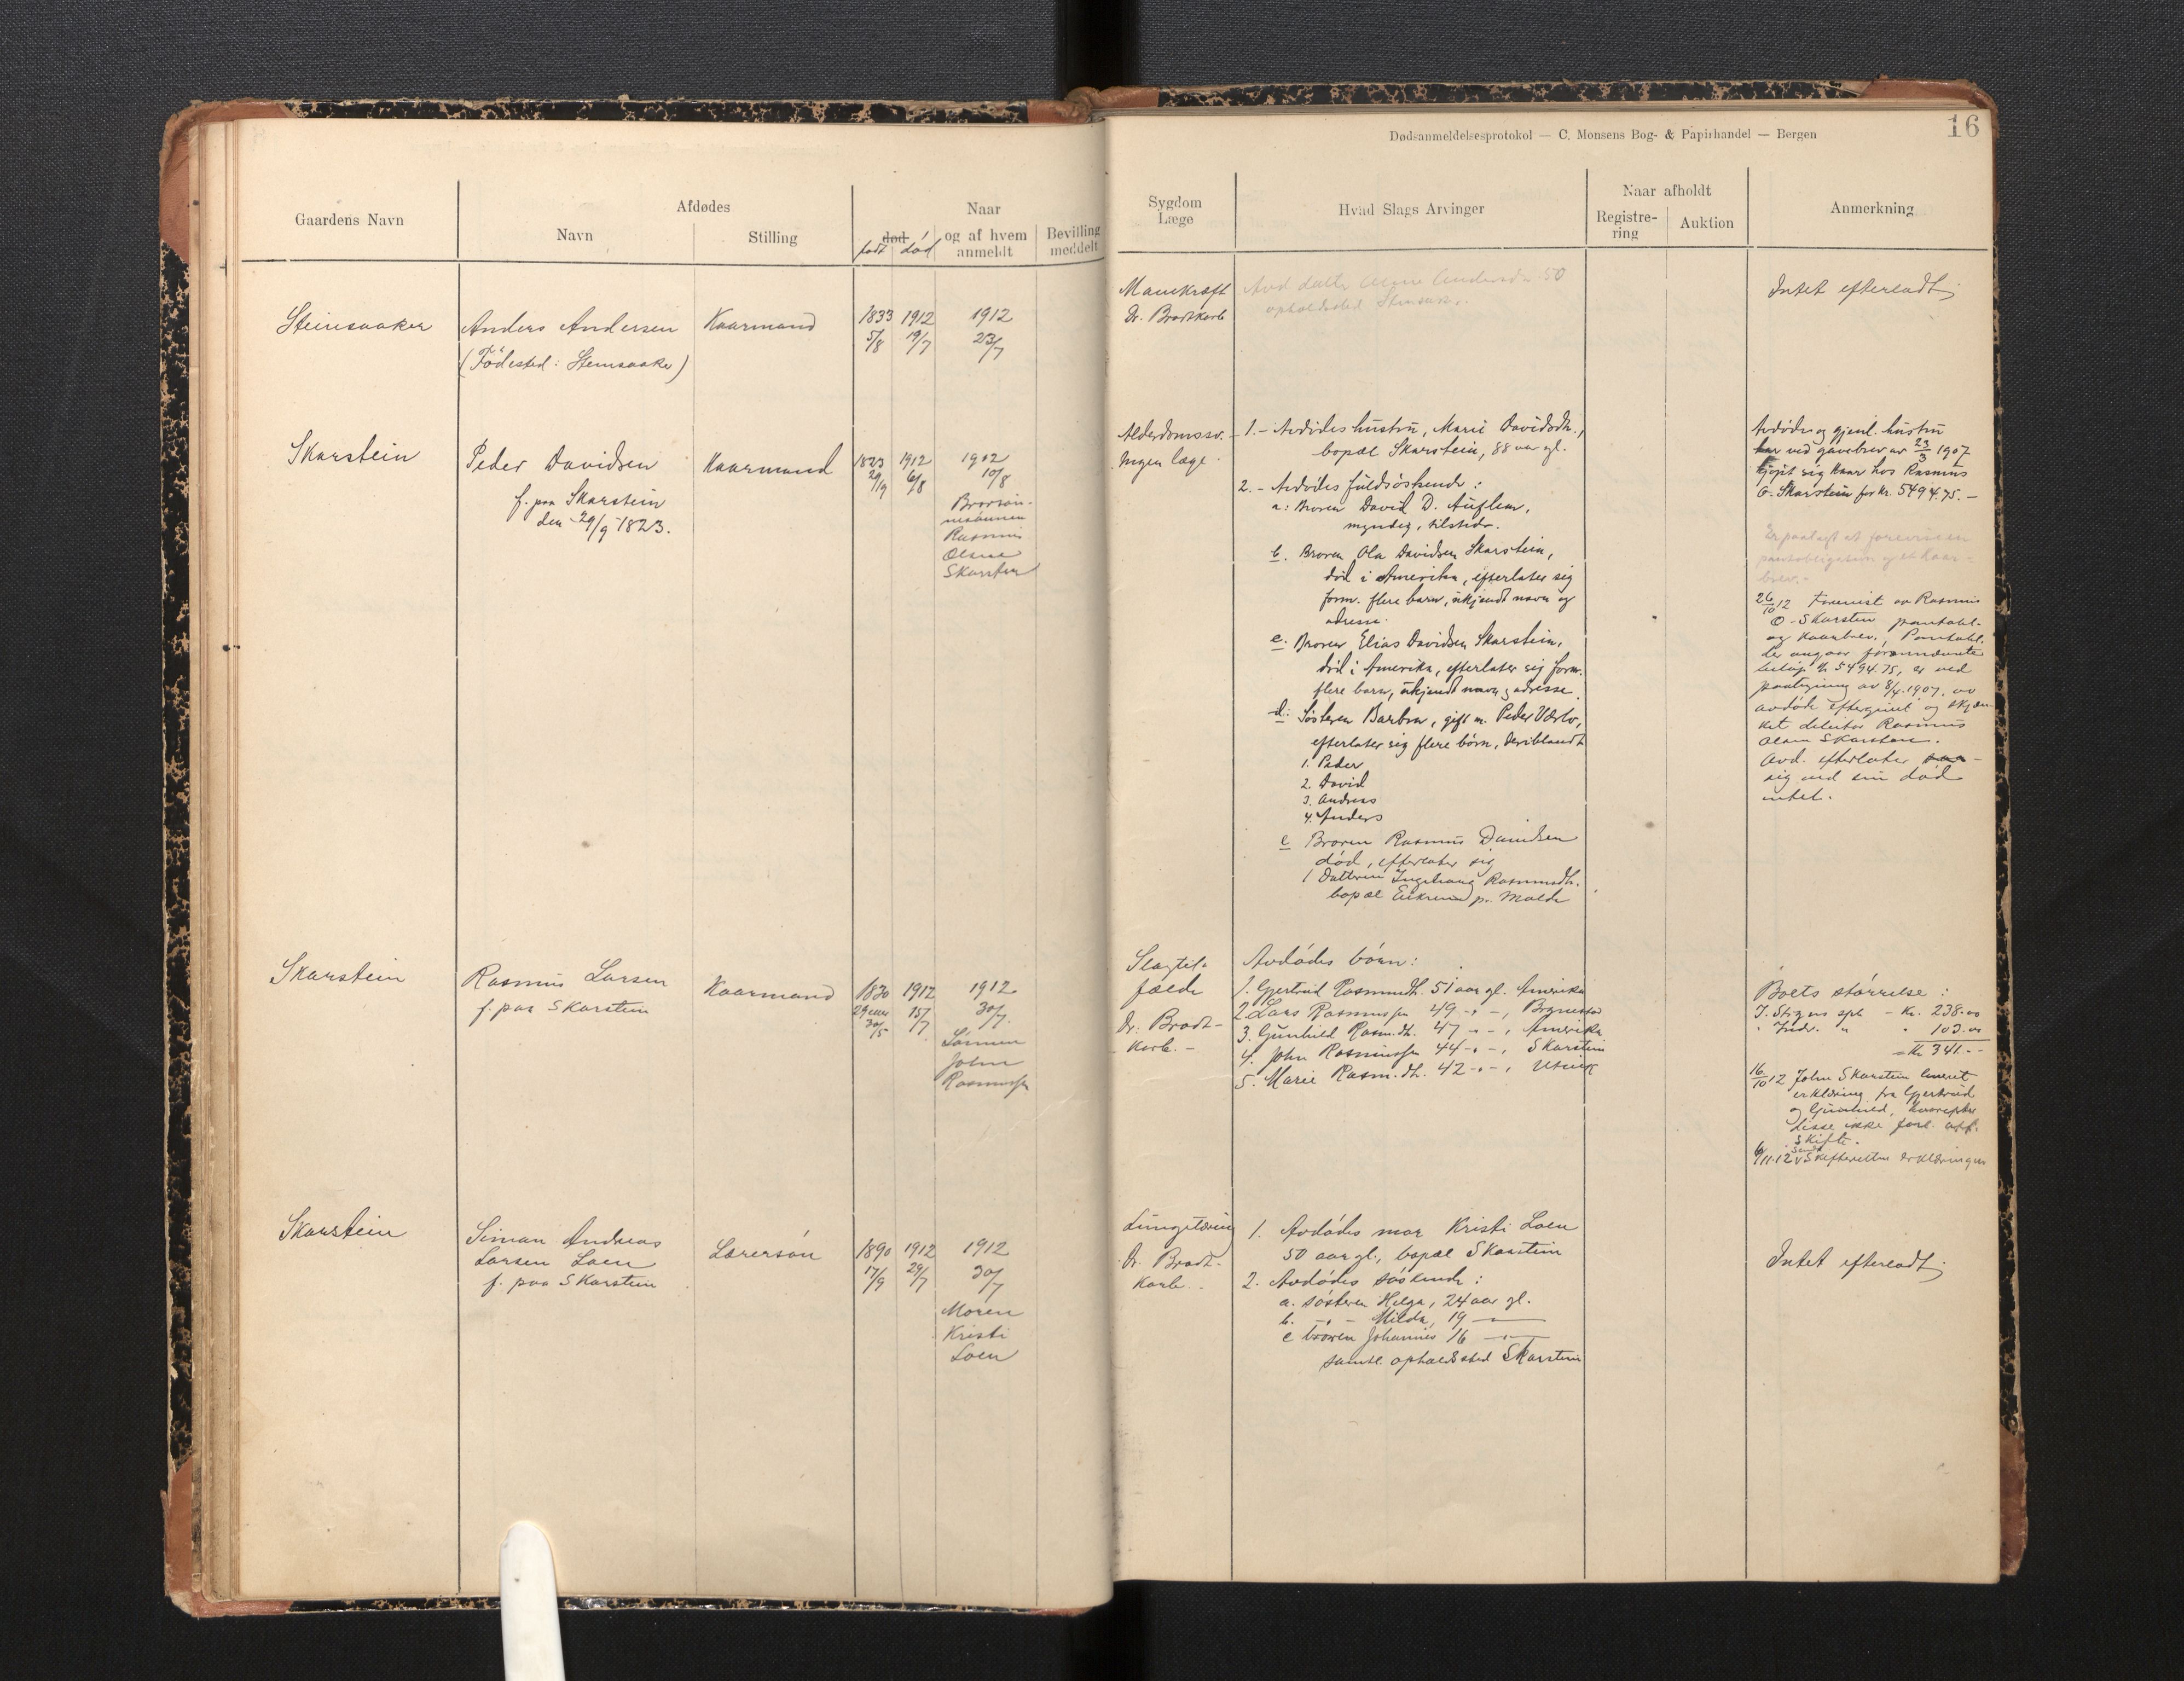 Dødsanmeldelsesprotokol — C. Monsens Bog- & Papirhandel — Bergen
16
Gaardens Navn
Afdødes
Navn
Stilling
Naar
død
født død
og af hvem
anmeldt
Bevilling
meddelt
Sygdom
Læge
Hvad Slags Arvinger
Naar afholdt
Registre-
ring
Auktion
Anmerkning
Steinsaaker
Anders Andersen
(Födested: Steinsaaker)
Kaarmand
1833 1912 1912
5/8 19/7 23/7
Mavekræft
Dr. Brodtkorb
Avd datter Anne Andersdr 50
opholdssted Stensak.
Intet efterladt
Skarstein
Peder Davidsen
f. paa Skarstein
den 29/9 1823.
Kaarmand
1823 1912 1912
29/9 6/8 10/8
Brorsøn-
Rasmus
Olsen
Skarsten
Alderdomssv.
Ingen læge
1. - Avdödes hustru, Marie Davidsdtr.,
bopæl Skarstein, 88 aar gl.
2. - Avdödes fuldsøskende:
a: Broren David D. Auflem,
myndig, tilstede.
b. Broren Ola Davidsen Skarstein,
död i Amerika, efterlater sig
form. flere barn, ukjendt navn og
adresse.
c. Broren Elias Davidsen Skarstein,
död i Amerika, efterlater sig form.
flere barn, ukjendt navn og adresse.
d: Søsteren Barbra, gift m. Peder
efterlater sig flere börn, deriblandt
1. Peder
2. David
3. Andreas
4. Anders
e Broren Rasmus Davidsen
död, efterlater sig
1 Datteren Ingebrand Rasmusdtr.
bopæl Eikrem pr. Molde
Avdöde og gjenl. hustru
har ved gavebrev av 23/3 1907
kjøpt sig kaar hos Rasmus
O. Skarstein for kr. 5494.75. -
Er paalagt at forevise en
pantobligasjon og et kaar-
brev. -
26/10 12 Fremvist av Rasmus
O. Skarsten pantobl.
og kaarbrev. Pantobl.
der angaar forannævnte
beløp kr 5494.75, er ved
paategning av 8/4 1907, av
avdøde eftergivet og skjæn-
ket debitor Rasmus
Olsen Skarsten.
Avd. efterlater
sig ved sin død
intet.
Skarstein
Rasmus Larsen
f. paa Skarstein
Kaarmand
1830 1912 1912
30/5 15/7 30/7
Sønnen
John
Rasmussen
Slagtil-
fælde
Dr. Brodt-
korb. -
Avdødes børn:
1. Gjertrud Rasmusdtr. 51 aar gl. Amerika
2 Lars Rasmussen 49 -"-, Brynestad
3. Gunhild Rasm.dtr. 47 -"-, Amerika
4. John Rasmussen 44 -"-, Skarstein
5. Marie Rasm.dtr. 42 -"-, Utvik
Boets størrelse:
- Kr. 238.00
" Indr. " " 103.00
= Kr 341. -
16/10 12 John Skarstein leveret
erklæring fra Gjertrud
og Gunhild, hvorefter
disse ikke forl. off.
Skifte.
6/11.12 Sendt Skifteretten erklæringen
Skarstein
Simon Andreas
Larsen Loen
f. paa Skarstein
Lærersøn
1890 1912 1912
17/9 29/7 30/7
Moren
Kristi
Loen
Lungetæring
Dr. Brodt-
korb.
1. Avdødes mor Kristi Loen
50 aar gl., bopæl Skarstein
2. Avdødes søskende:
a. søsteren Helga, 24 aar gl.
b. -"- Milda, 19 -"-
c broren Johannes 16 -"-
samtl. opholdssted Skarstein
Intet efterladt.